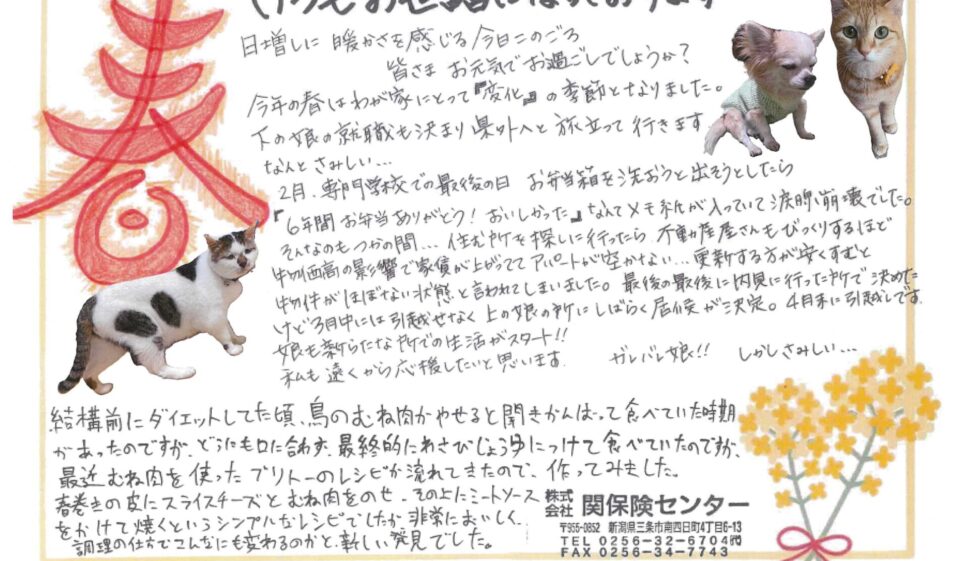 いつもお世話になっております
春
日増しに 暖かさを感じる今日このごろ
皆さま お元気でお過ごしでしょうか?
今年の春はわが家にとって『変化』の季節となりました。
下の娘の就職も決まり県外へと旅立って行きます
なんとさみしい…
2月、専門学校での最後の日 お弁当箱を洗おうと出そうとしたら
『6年間お弁当ありがとう! おいしかった』なんてメモ紙が入っていて涙腺崩壊でした。
そんなのもつかの間… 住む所を探しに行ったら 不動産屋さんもびっくりするほど
物価高の影響で家賃が上がっててアパートが空かない…更新する方が安くすむと
物件がほぼない状態と言われてしまいました。最後の最後に内見に行った所で決めた
けど3月中には引越せなく上の娘の所にしばらく居候が決定。4月末に引越しです
娘も新らたな所での生活がスタート!!
私も遠くから応援したいと思います ガンバレ娘!! しかしさみしい…
結構前にダイエットしてた頃、鳥のむね肉がやせると聞きがんばって食べていた時期
があったのですが、どうにも口に合わず、最終的にわさびじょうゆにつけて食べていたのですが、
最近むね肉を使ったブリトーのレシピが流れてきたので、作ってみました。
春巻きの皮にスライスチーズとむね肉をのせ、その上にミートソース
をかけて焼くというシンプルなレシピでしたが非常においしく、
調理の仕方でこんなにも変わるのかと、新しい発見でした。
株式会社 関保険センター
〒955-0852 新潟県三条市南四日町4丁目6-13
TEL 0256-32-6704㈹
FAX 0256-34-7743